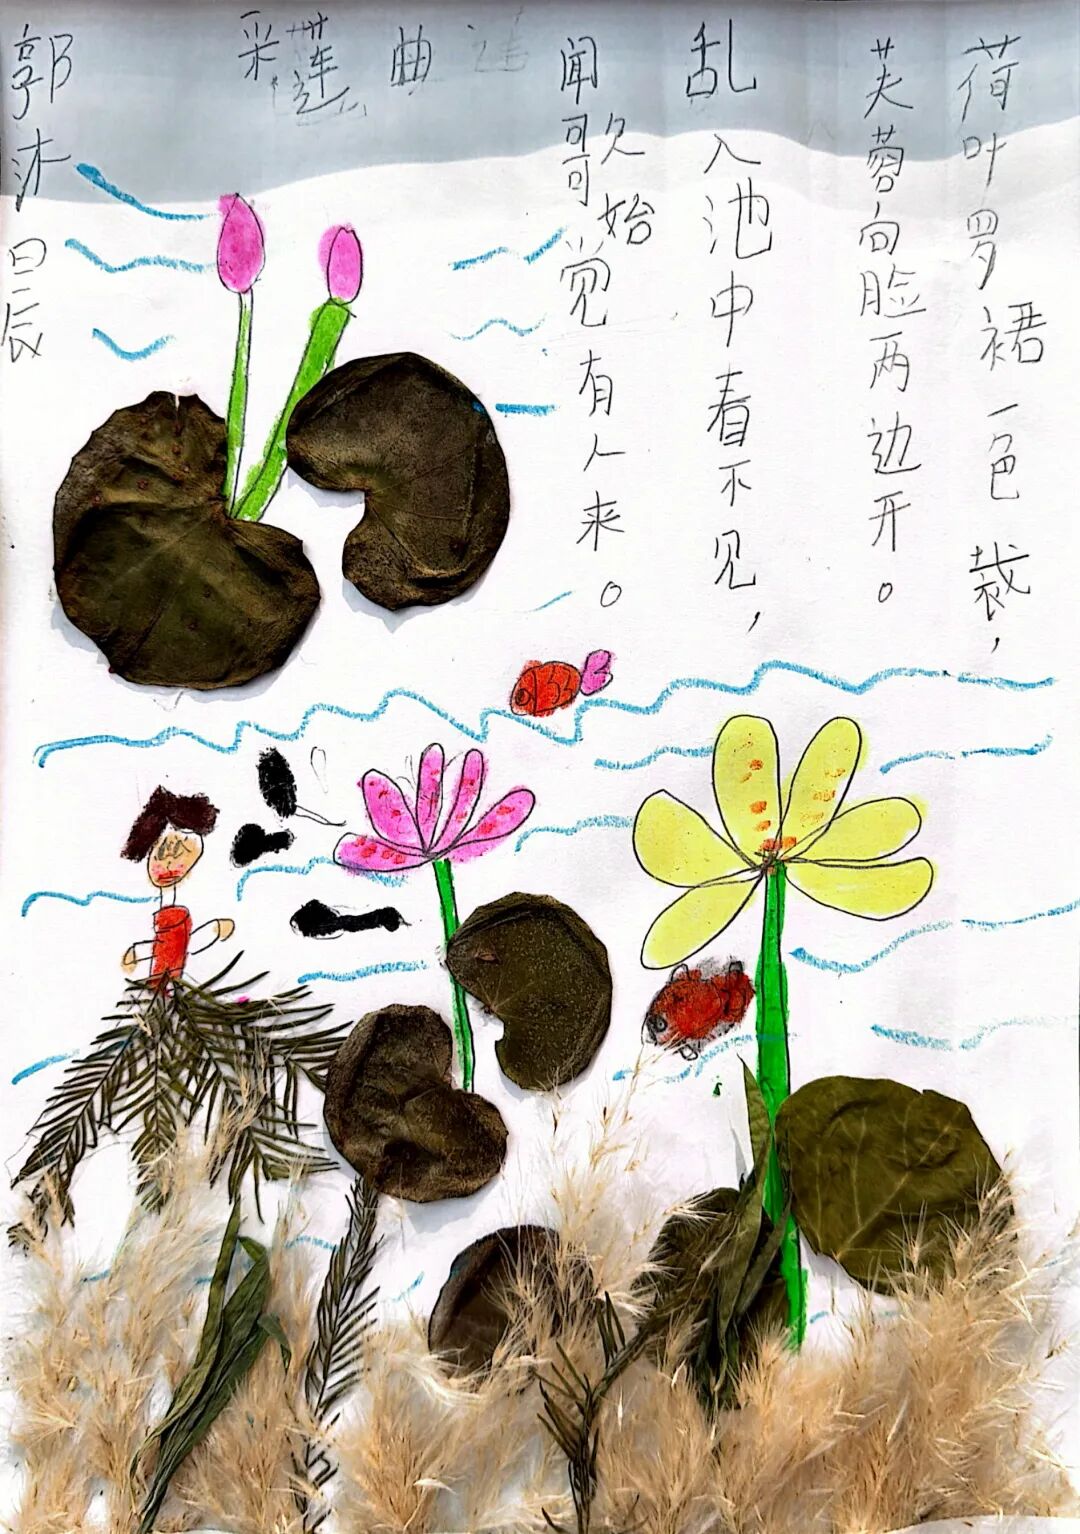 荷叶罗裙一色裁，
芙蓉向脸两边开。
乱入池中看不见，
闻歌始觉有人来。
采莲曲
郭沐晨